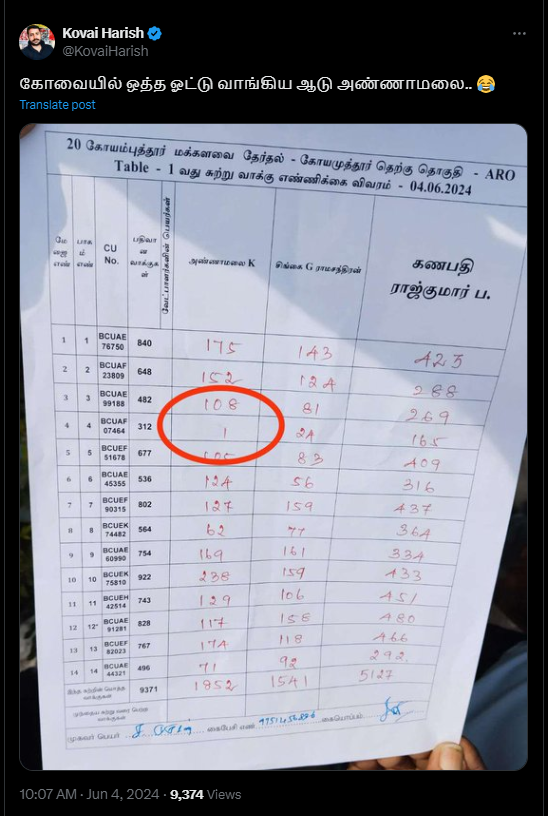 Kovai Harish
@KovaiHarish
கோவையில் ஒத்த ஓட்டு வாங்கிய ஆடு அண்ணாமலை.. 😂
Translate post
20 கோயம்புத்தூர் மக்களவை தேர்தல் - கோயமுத்தூர் தெற்கு தொகுதி - ARO
Table - 1 வது சுற்று வாக்கு எண்ணிக்கை விவரம் - 04.06.2024
மேஜை எண் பாகம் எண் CU No. பதிவான வாக்குகள் வேட்பாளர்களின் பெயர்கள் அண்ணாமலை K சிங்கை G ராமசந்திரன் கணபதி ராஜ்குமார் ப.
1 1 BCUAE 76750 840 175 143 423
2 2 BCUAF 23809 648 152 124 288
3 3 BCUAE 99188 482 108 81 269
4 4 BCUAF 07464 312 1 24 165
5 5 BCUEF 51678 677 105 83 409
6 6 BCUAE 45355 536 124 56 316
7 7 BCUEF 90315 802 127 159 437
8 8 BCUEK 74482 564 62 77 364
9 9 BCUAE 60990 754 169 161 334
10 10 BCUEK 75810 922 238 159 433
11 11 BCUEH 42514 743 129 106 451
12 12 BCUAE 91281 828 117 158 480
13 13 BCUEF 82023 767 174 118 466
14 14 BCUAE 44321 496 71 92 292
இந்த சுற்றின் மொத்த வாக்குகள் 9371 1852 1541 5127
முந்தைய சுற்று வரை பெற்ற வாக்குகள்
முகவர் பெயர் கைபேசி எண் கையொப்பம்
10:07 AM · Jun 4, 2024 · 9,374 Views